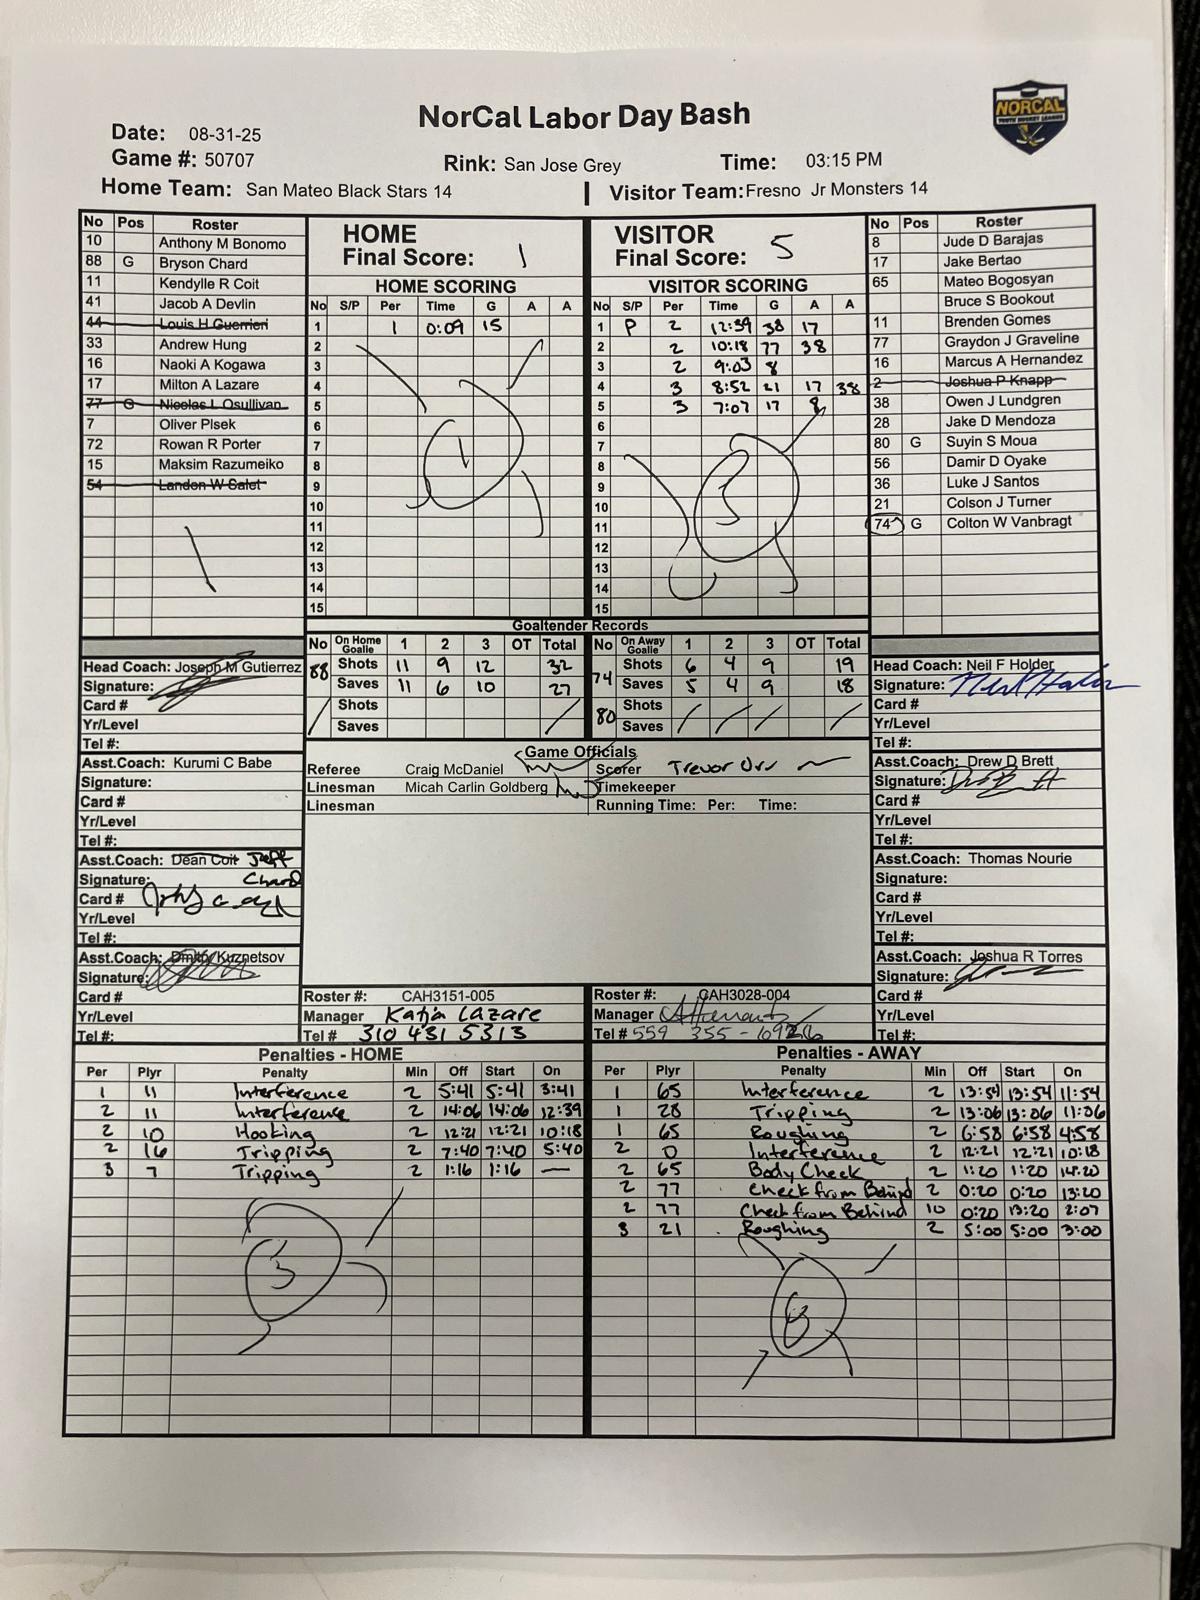 NorCal Labor Day Bash
NORCAL
YOUTH HOCKEY LEAGUE
Date: 08-31-25
Game #: 50707 Rink: San Jose Grey Time: 03:15 PM
Home Team: San Mateo Black Stars 14 Visitor Team: Fresno Jr Monsters 14
No Pos Roster
10 Anthony M Bonomo
88 G Bryson Chard
11 Kendylle R Coit
41 Jacob A Devlin
44 Louis H Guerrieri
33 Andrew Hung
16 Naoki A Kogawa
17 Milton A Lazare
77 G Nicolas L Osullivan
7 Oliver Plsek
72 Rowan R Porter
15 Maksim Razumeiko
54 Landon W Salet
HOME
Final Score: 1
HOME SCORING
No S/P Per Time G A A
1 1 0:09 15
2
3
4
5
6
7
8
9
10
11
12
13
14
15
1
VISITOR
Final Score: 5
VISITOR SCORING
No S/P Per Time G A A
1 P 2 12:39 38 17
2 2 10:18 77 38
3 2 9:03 8
4 3 8:52 21 17 38
5 3 7:07 17 8
6
7
8
9
10
11
12
13
14
15
No Pos Roster
8 Jude D Barajas
17 Jake Bertao
65 Mateo Bogosyan
Bruce S Bookout
11 Brenden Gomes
77 Graydon J Graveline
16 Marcus A Hernandez
2 Joshua P Knapp
38 Owen J Lundgren
28 Jake D Mendoza
80 G Suyin S Moua
56 Damir D Oyake
36 Luke J Santos
21 Colson J Turner
74 G Colton W Vanbragt
Goaltender Records
No On Home Goalie 1 2 3 OT Total
88 Shots 11 9 12 32
Saves 11 6 10 27
Shots
Saves
No On Away Goalie 1 2 3 OT Total
74 Shots 6 4 9 19
Saves 5 4 9 18
80 Shots
Saves
Head Coach: Joseph M Gutierrez
Signature:
Card #
Yr/Level
Tel #:
Asst.Coach: Kurumi C Babe
Signature:
Card #
Yr/Level
Tel #:
Asst.Coach: Dean Coit Jeff
Signature: Chard
Card #
Yr/Level
Tel #:
Asst.Coach: Dmitry Kuznetsov
Signature:
Card #
Yr/Level
Tel #:
Game Officials
Referee Craig McDaniel Scorer Trevor
Linesman Micah Carlin Goldberg Timekeeper
Linesman Running Time: Per: Time:
Roster #: CAH3151-005
Manager Katja Lazare
Tel # 310 431 5313
Roster #: CAH3028-004
Manager
Tel # 559 355 -
Head Coach: Neil F Holder
Signature: Neil Holder
Card #
Yr/Level
Tel #:
Asst.Coach: Drew D Brett
Signature:
Card #
Yr/Level
Tel #:
Asst.Coach: Thomas Nourie
Signature:
Card #
Yr/Level
Tel #:
Asst.Coach: Joshua R Torres
Signature:
Card #
Yr/Level
Tel #:
Penalties - HOME
Per Plyr Penalty Min Off Start On
1 11 Interference 2 5:41 5:41 3:41
2 11 Interference 2 14:06 14:06 12:39
2 10 Hooking 2 12:21 12:21 10:18
2 16 Tripping 2 7:40 7:40 5:40
3 7 Tripping 2 1:16 1:16 —
Penalties - AWAY
Per Plyr Penalty Min Off Start On
1 65 Interference 2 13:54 13:54 11:54
1 28 Tripping 2 13:06 13:06 11:06
1 65 Roughing 2 6:58 6:58 4:58
2 0 Interference 2 12:21 12:21 10:18
2 65 Body Check 2 1:20 1:20 14:20
2 77 Check from Behind 2 0:20 0:20 13:20
2 77 Check from Behind 10 0:20 13:20 2:07
3 21 Roughing 2 5:00 5:00 3:00